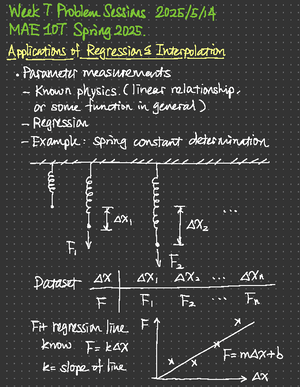 Week 7 Problem Sessions 2025/5/14
MAE 107 Spring 2025.
Applications of Regression & Interpolation
• Parameter measurements
- Known physics. (linear relationship,
or some function in general)
- Regression
- Example: spring constant determination
ΔX₁
ΔX₂
...
F₁
F₂
Dataset ΔX ΔX₁ ΔX₂ ... ΔXn
F F₁ F₂ ... Fn
Fit regression line
know F = kΔX
k = slope of line
F
F = mΔX + b
ΔX